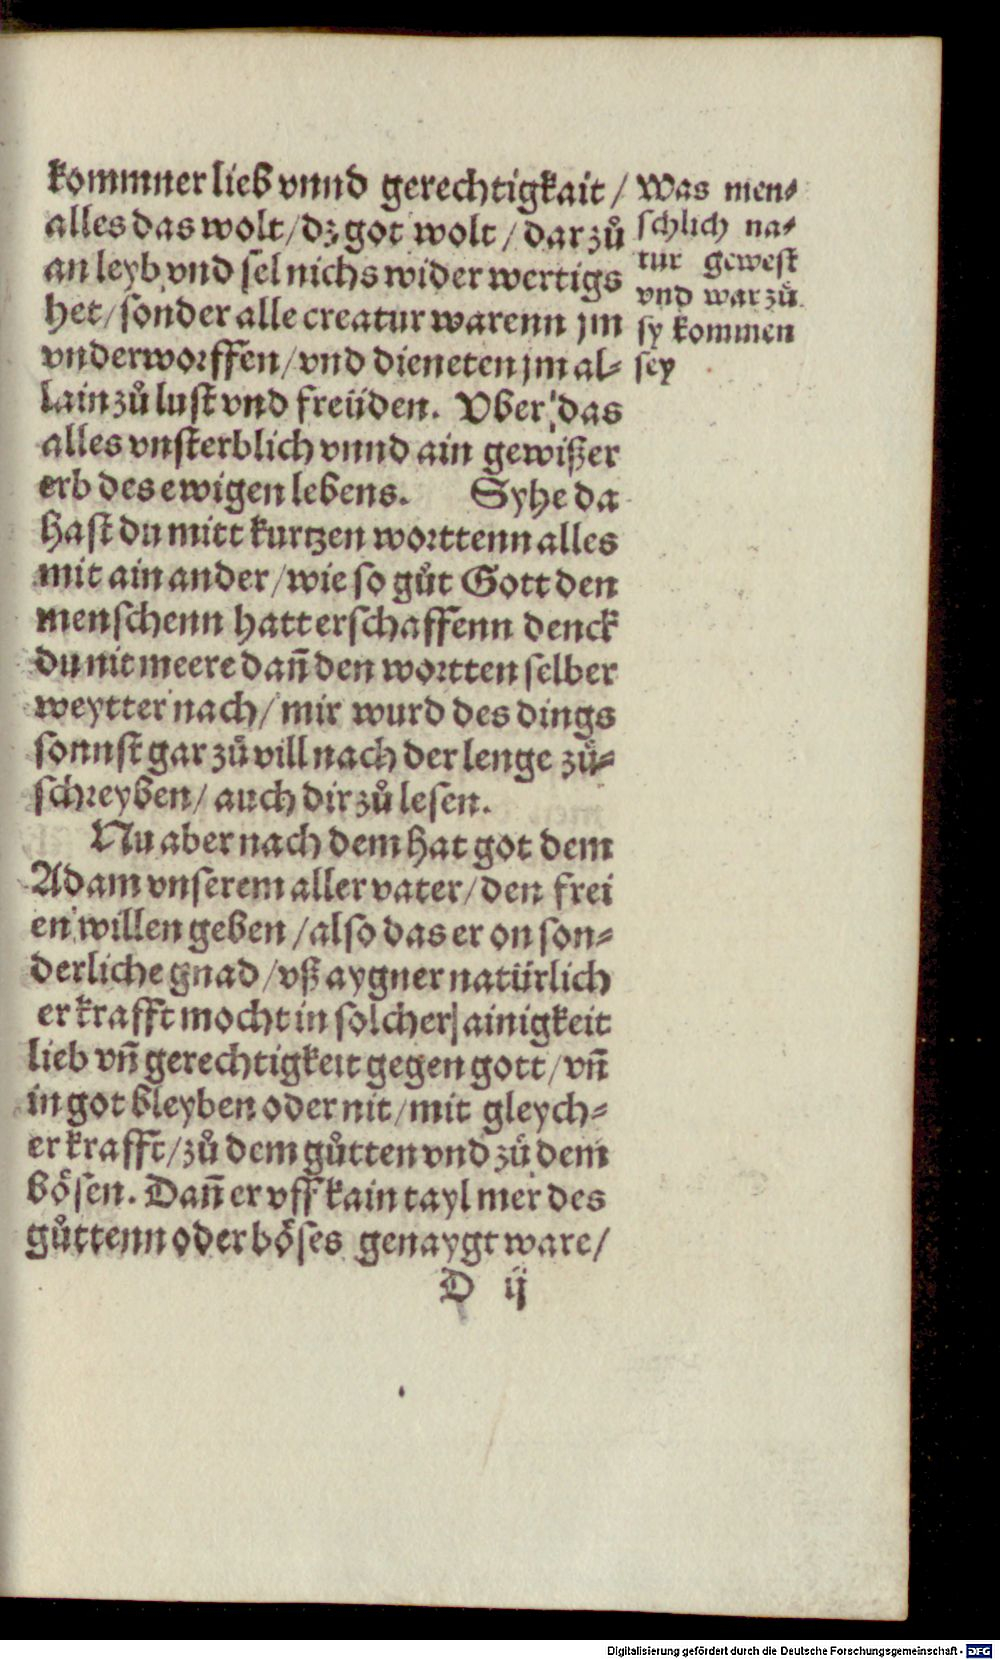 kommner lieb vnnd gerechtigkait /
alles das wolt / dz got wolt / dar zů
an leyb vnd sel nichs wider wertigs
het / sonder alle creatur warenn jm
vnderworffen / vnd dieneten jm al-
lain zů lust vnd freüden. Vber das
alles vnsterblich vnnd ain gewißer
erb des ewigen lebens. Syhe da
hast du mitt kurtzen worttenn alles
mit ain ander / wie so gůt Gott den
menschenn hatt erschaffenn denck
du nit meere dañ den wortten selber
weytter nach / mir wurd des dings
sonnst gar zů vill nach der lenge zů-
schreyben / auch dir zů lesen.
Nu aber nach dem hat got dem
Adam vnserem aller vater / den frei
en willen geben / also das er on son-
derliche gnad / vß aygner natürlich
er krafft mocht in solcher ainigkeit
lieb vñ gerechtigkeit gegen gott / vñ
in got bleyben oder nit / mit gleych-
er krafft / zů dem gůtten vnd zů dem
bösen. Dañ er vff kain tayl mer des
gůttenn oder böses genaygt ware /
D ij
Was men-
schlich na-
tur gewest
vnd war zů
sy kommen
sey
Digitalisierung gefördert durch die Deutsche Forschungsgemeinschaft - DFG